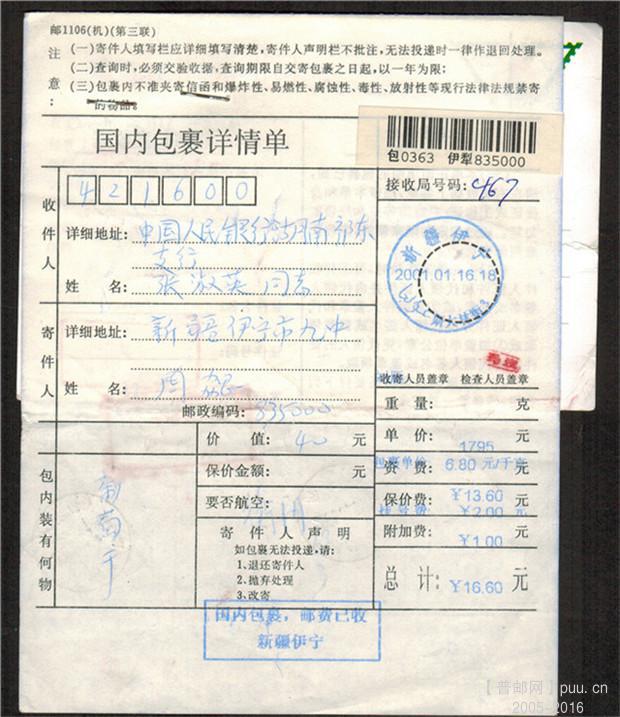 邮1106(机)(第三联)
注意：
(一)寄件人填写栏应详细填写清楚，寄件人声明栏不批注，无法投递时一律作退回处理。
(二)查询时，必须交验收据，查询期限自交寄包裹之日起，以一年为限：
(三)包裹内不准夹寄信函和爆炸性、易燃性、腐蚀性、毒性、放射性等现行法律法规禁寄
的物品。
国内包裹详情单
包0363 伊犁835000
接收局号码：467
421600
收件人
详细地址：中国人民银行湖南邵东
支行
姓 名：张淑英同志
新疆伊宁
2001.01.16.18
寄件人
详细地址：新疆伊宁市九中
姓 名：周
邮政编码：835000
收寄人员盖章 检查人员盖章
重 量： 克
价 值：40 元
单 价： 元
1795
包裹单价 6.80 元/千克
保价金额： 元
资 费： 元
¥13.60
要否航空：
保价费： 元
¥2.00
附加费： 元
¥1.00
总 计：¥16.60 元
包内装有何物
葡萄干
寄 件 人 声 明
如包裹无法投递，请：
1.退还寄件人
2.抛弃处理
3.改寄
国内包裹，邮费已收
新疆伊宁
【普邮网】puu.cn
2005-2016